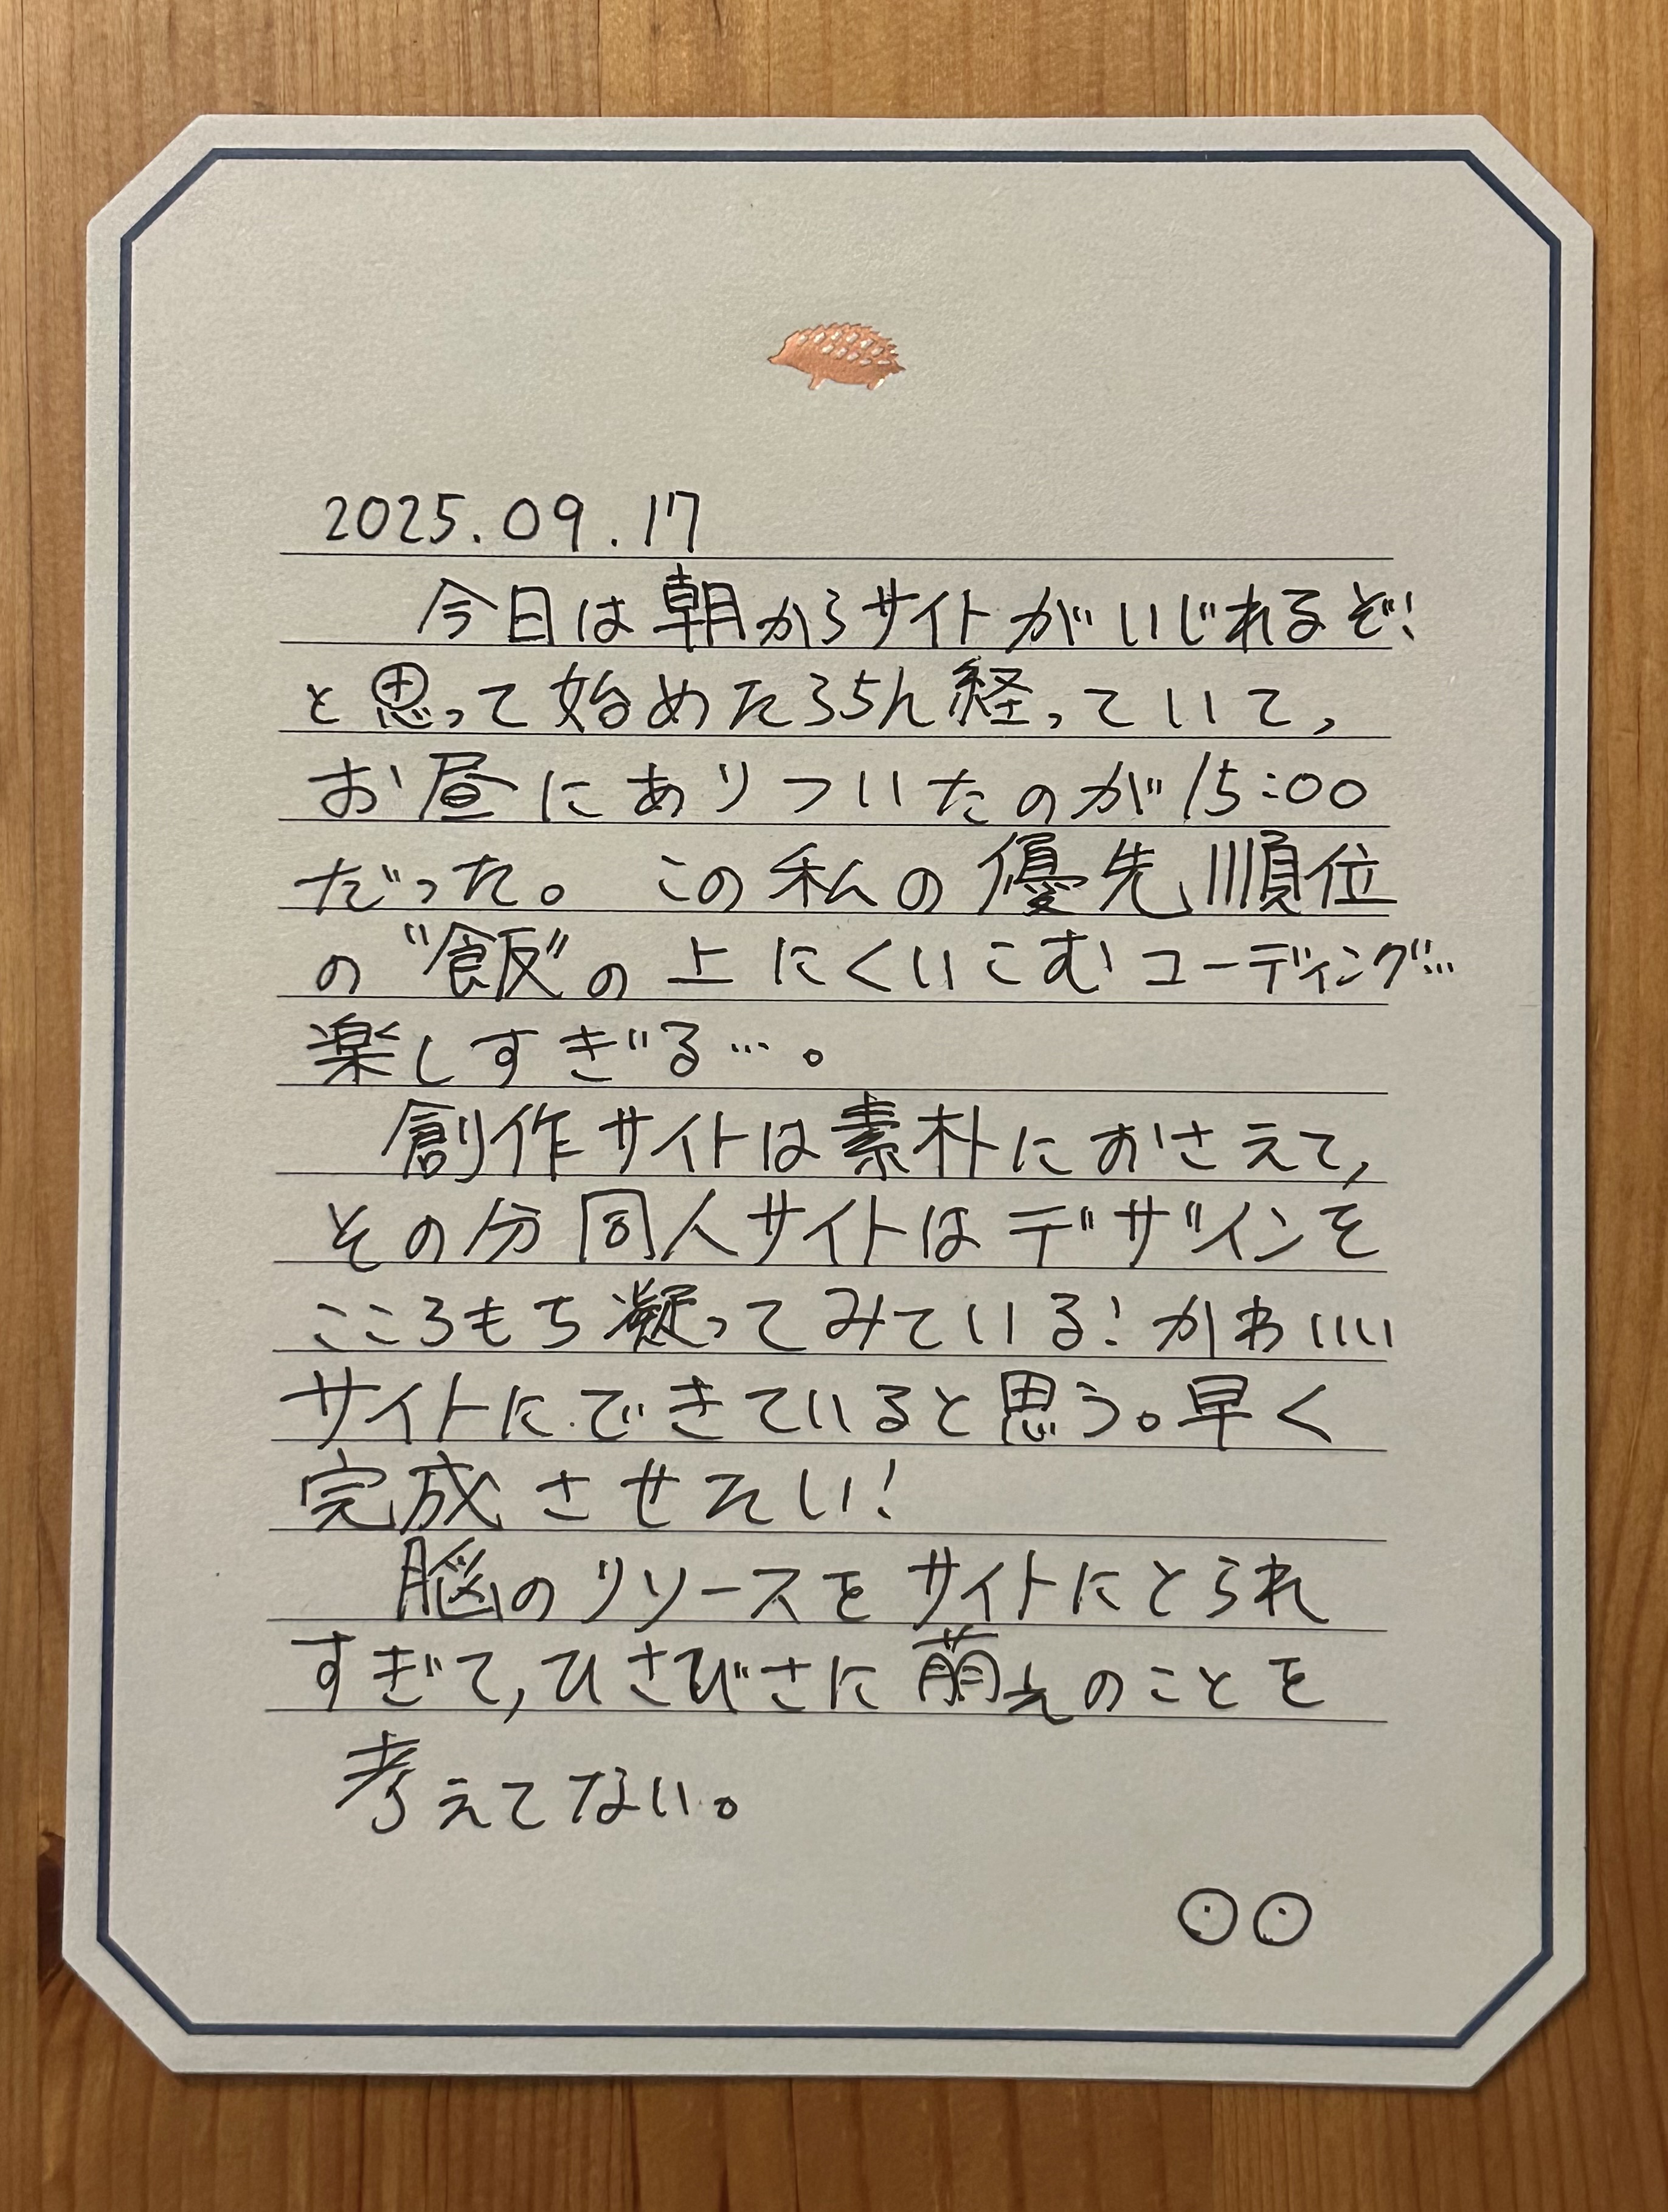 2025.09.17
今日は朝からサイトがいじれるぞ!
と思って始めたら5h経っていて、
お昼にありついたのが15:00
だった。この私の優先順位
の"飯"の上にくいこむコーディング…
楽しすぎる…。
創作サイトは素朴におさえて、
その分同人サイトはデザインを
こころもち凝ってみている!かわいい
サイトにできていると思う。早く
完成させたい!
脳のリソースをサイトにとられ
すぎて、ひさびさに萌えのことを
考えてない。